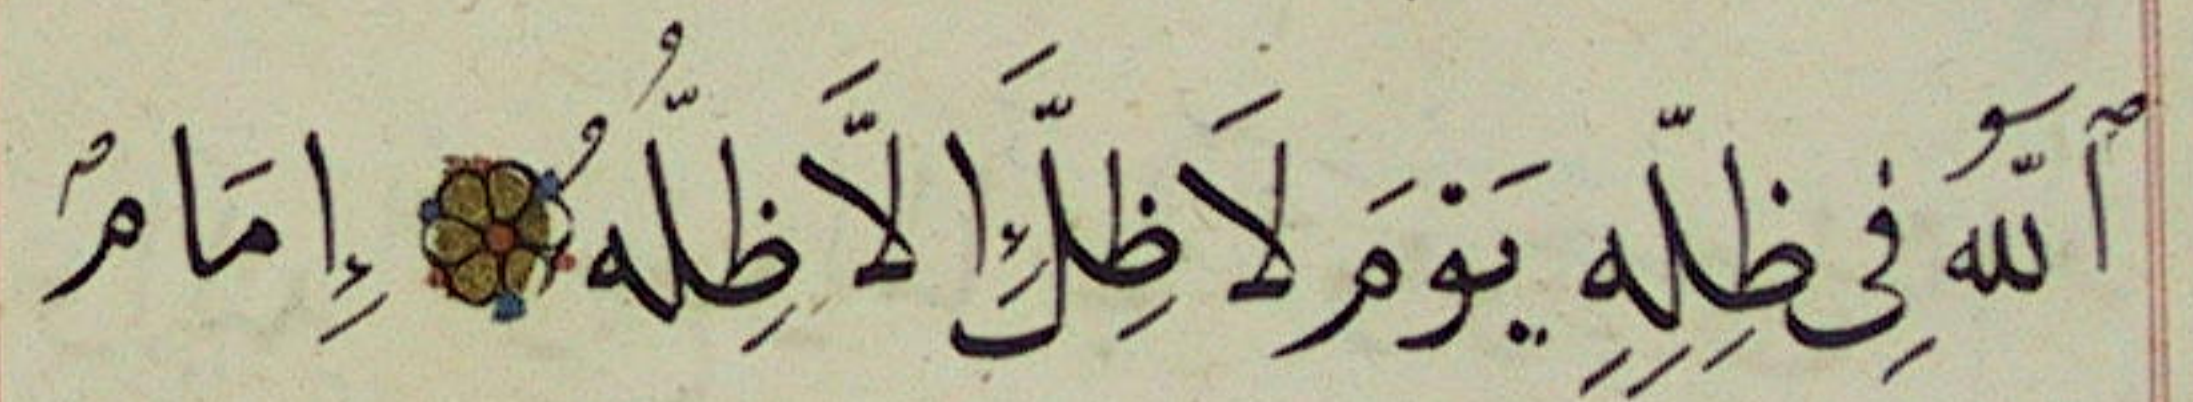 ٱللَّهُ فِى ظِلِّهِ يَوْمَ لَا ظِلَّ إِلَّا ظِلُّهُ ۞ إِمَامٌ